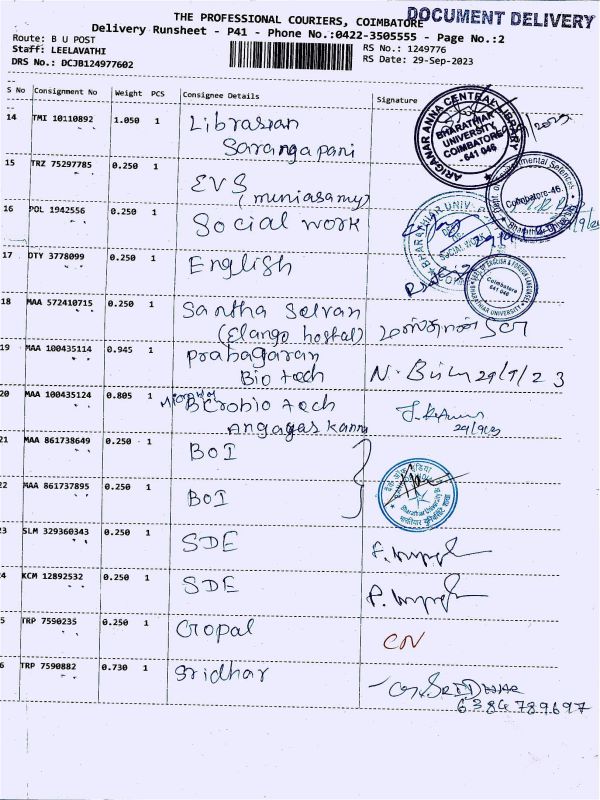 THE PROFESSIONAL COURIERS, COIMBATORE
DOCUMENT DELIVERY
Delivery Runsheet - P41 - Phone No.:0422-3505555 - Page No.:2
Route: B U POST
Staff: LEELAVATHI
DRS No.: DCJB124977602
RS No.: 1249776
RS Date: 29-Sep-2023
S No Consignment No Weight PCS Consignee Details Signature
14 TMI 10110892 1.050 1 Librasian
Sarangapani
ARIGNAR ANNA CENTRAL LIBRARY
BHARATHIAR
UNIVERSITY
COIMBATORE
- 641 046
15 TRZ 75297785 0.250 1 EVS
(muniasamy)
Coimbatore-46
16 POL 1942556 0.250 1 Social work
17 DTY 3778099 0.250 1 English
Coimbatore
641 046
18 MAA 572410715 0.250 1 Santha Selvan
(Elango hostal)
19 MAA 100435114 0.945 1 Prabagaran
Bio tech
29/9/23
20 MAA 100435124 0.805 1
Angagas kannu
29/9/23
21 MAA 861738649 0.250 1 BOI
22 MAA 861737895 0.250 1 BOI
23 SLM 329360343 0.250 1 SDE
24 KCM 12892532 0.250 1 SDE
5 TRP 7590235 0.250 1 Gopal
CN
6 TRP 7590882 0.730 1 Sridhar
G. SRIDHAR
6384789697